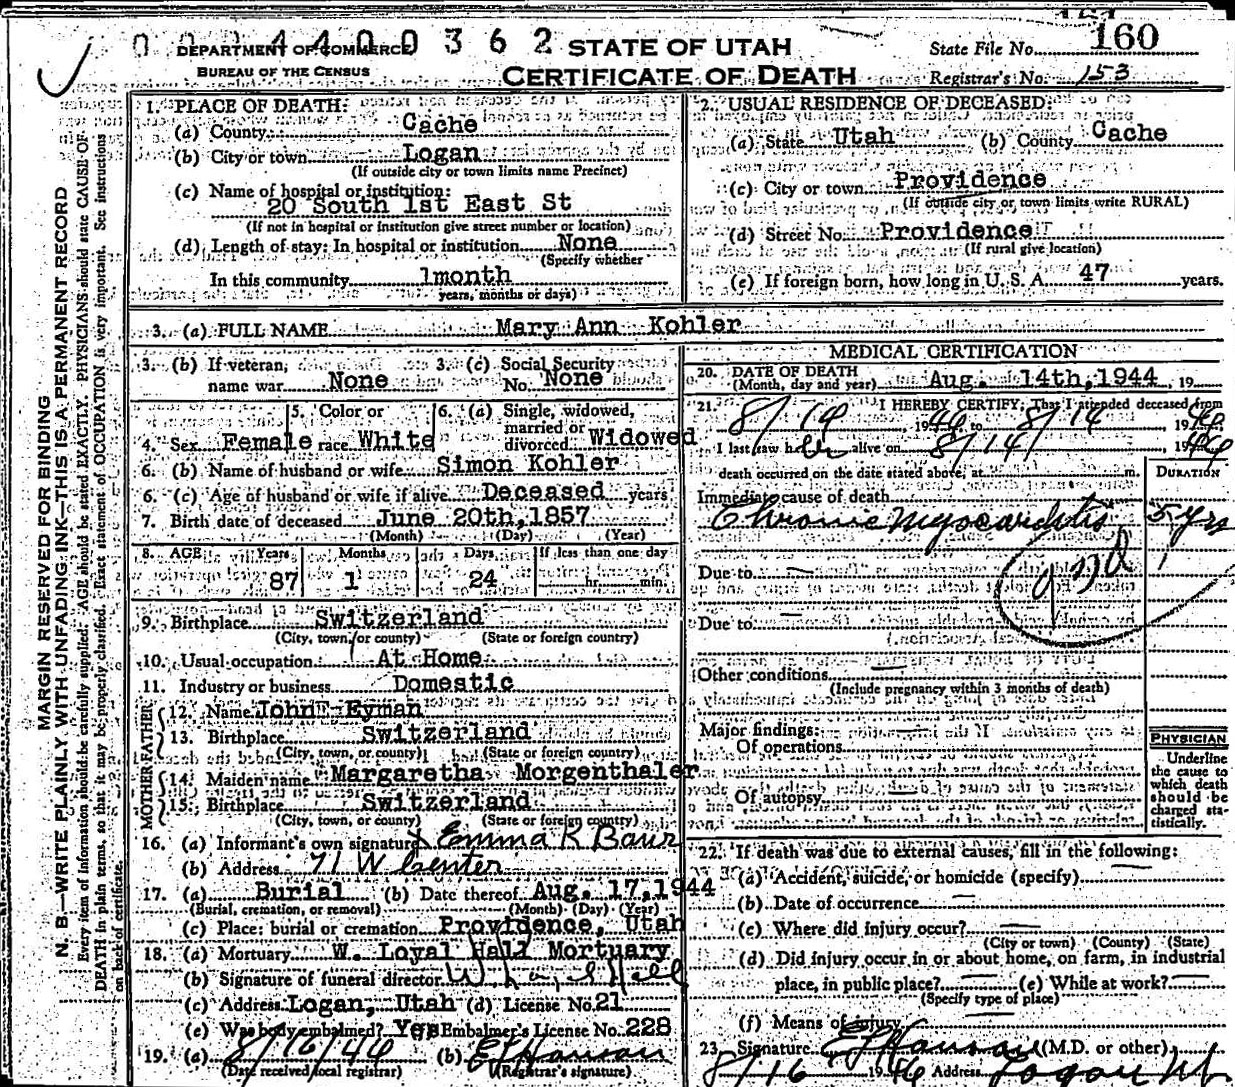 0 0 4 4 0 0 3 6 2
DEPARTMENT OF COMMERCE
BUREAU OF THE CENSUS
STATE OF UTAH
CERTIFICATE OF DEATH
State File No. 160
Registrar's No. 153
MARGIN RESERVED FOR BINDING
N. B.—WRITE PLAINLY WITH UNFADING INK—THIS IS A PERMANENT RECORD
Every item of information should be carefully supplied. AGE should be stated EXACTLY. PHYSICIANS should state CAUSE OF
DEATH in plain terms, so that it may be properly classified. Exact statement of OCCUPATION is very important. See instructions
on back of certificate.
1. PLACE OF DEATH:
(a) County Cache
(b) City or town Logan
(If outside city or town limits name Precinct)
(c) Name of hospital or institution:
20 South 1st East St
(If not in hospital or institution give street number or location)
(d) Length of stay: In hospital or institution None
(Specify whether
In this community 1month
years, months or days)
2. USUAL RESIDENCE OF DECEASED:
(a) State Utah (b) County Cache
(c) City or town Providence
(If outside city or town limits write RURAL)
(d) Street No. Providence
(If rural give location)
(e) If foreign born, how long in U. S. A. 47 years.
3. (a) FULL NAME Mary Ann Kohler
3. (b) If veteran, name war None
3. (c) Social Security No. None
4. Sex Female
5. Color or race White
6. (a) Single, widowed, married or divorced Widowed
6. (b) Name of husband or wife Simon Kohler
6. (c) Age of husband or wife if alive Deceased years
7. Birth date of deceased June 20th,1857
(Month) (Day) (Year)
8. AGE Years Months Days If less than one day
87 1 24 hr. min.
9. Birthplace Switzerland
(City, town, or county) (State or foreign country)
10. Usual occupation At Home
11. Industry or business Domestic
FATHER
12. Name John Eyman
13. Birthplace Switzerland
(City, town, or county) (State or foreign country)
MOTHER
14. Maiden name Margaretha Morgenthaler
15. Birthplace Switzerland
(City, town, or county) (State or foreign country)
16. (a) Informant's own signature x Emma K Baur
(b) Address 71 W Center
17. (a) Burial (b) Date thereof Aug. 17,1944
(Burial, cremation, or removal) (Month) (Day) (Year)
(c) Place: burial or cremation Providence, Utah
18. (a) Mortuary W. Loyal Hall Mortuary
(b) Signature of funeral director W. Loyal Hall
(c) Address Logan, Utah (d) License No. 21
(e) Was body embalmed? Yes Embalmer's License No. 228
19. (a) 8/16/44 (b) EJ Hanson
(Date received local registrar) (Registrar's signature)
MEDICAL CERTIFICATION
20. DATE OF DEATH
(Month, day and year) Aug. 14th,1944, 19
21. I HEREBY CERTIFY, That I attended deceased from
8/14 1944 to 8/14, 1944
I last saw her alive on 8/14/, 1944
death occurred on the date stated above, at m.
DURATION
Immediate cause of death
Chronic Myocarditis 5 yrs
Due to —
Due to —
Other conditions —
(Include pregnancy within 3 months of death)
Major findings:
Of operations —
Of autopsy —
PHYSICIAN
Underline
the cause to
which death
should be
charged sta-
tistically.
22. If death was due to external causes, fill in the following:
(a) Accident, suicide, or homicide (specify) —
(b) Date of occurrence —
(c) Where did injury occur? —
(City or town) (County) (State)
(d) Did injury occur in or about home, on farm, in industrial
place, in public place? — (e) While at work? —
(Specify type of place)
(f) Means of injury —
23. Signature EJ Hanson (M.D. or other)
8/16 1946 Address Logan Ut.